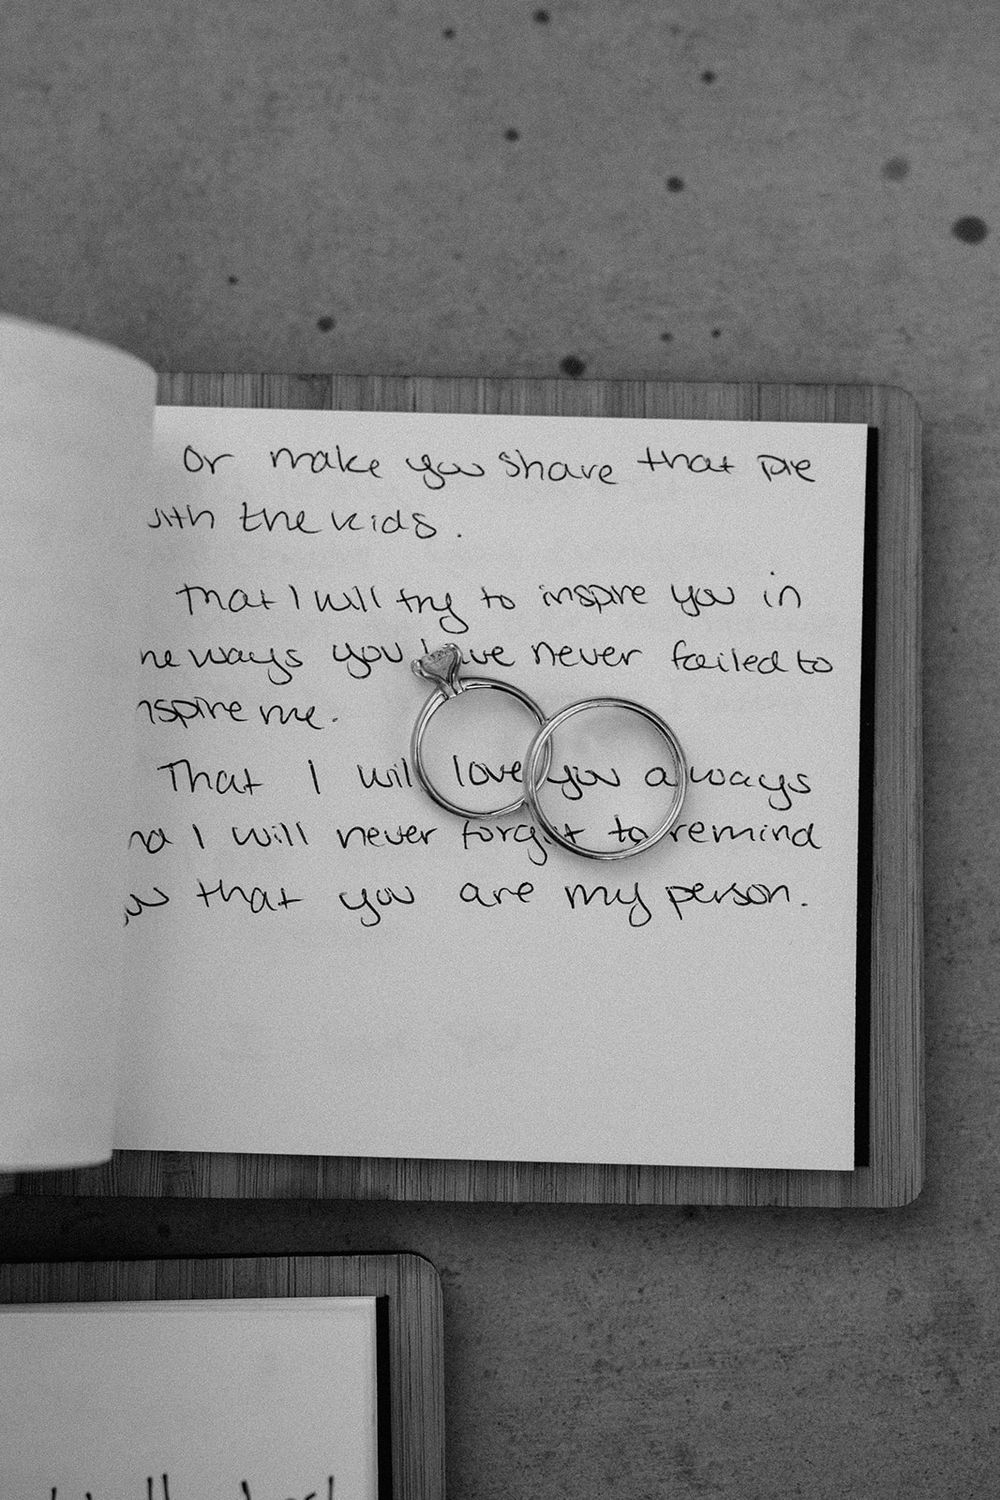 Or make you share that pie
with the kids.
That I will try to inspire you in
the ways you have never failed to
inspire me.
That I will love you always
and I will never forget to remind
you that you are my person.